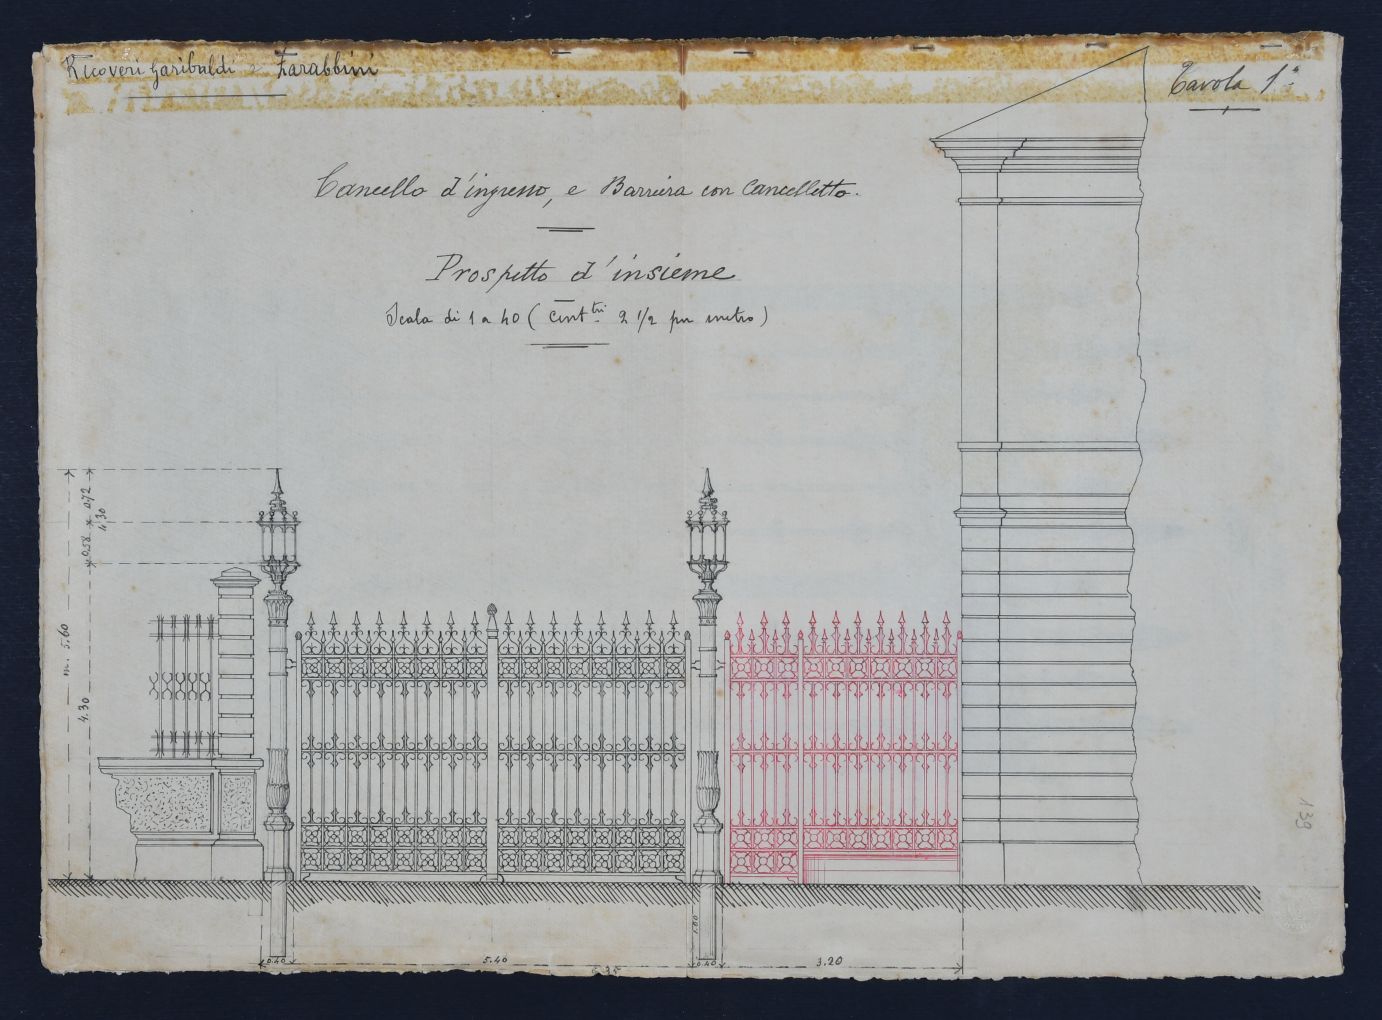 Ricoveri Garibaldi e Zarabbini
Tavola 1ª
Cancello d'ingresso, e Barriera con Cancelletto.
Prospetto d'insieme
Scala di 1 a 40 ( Cent.tri 2 1/2 per metro )
0,72
4.30
0.58
m. 5.60
4.30
139
1.00
0.40
5.40
0.40
3.20